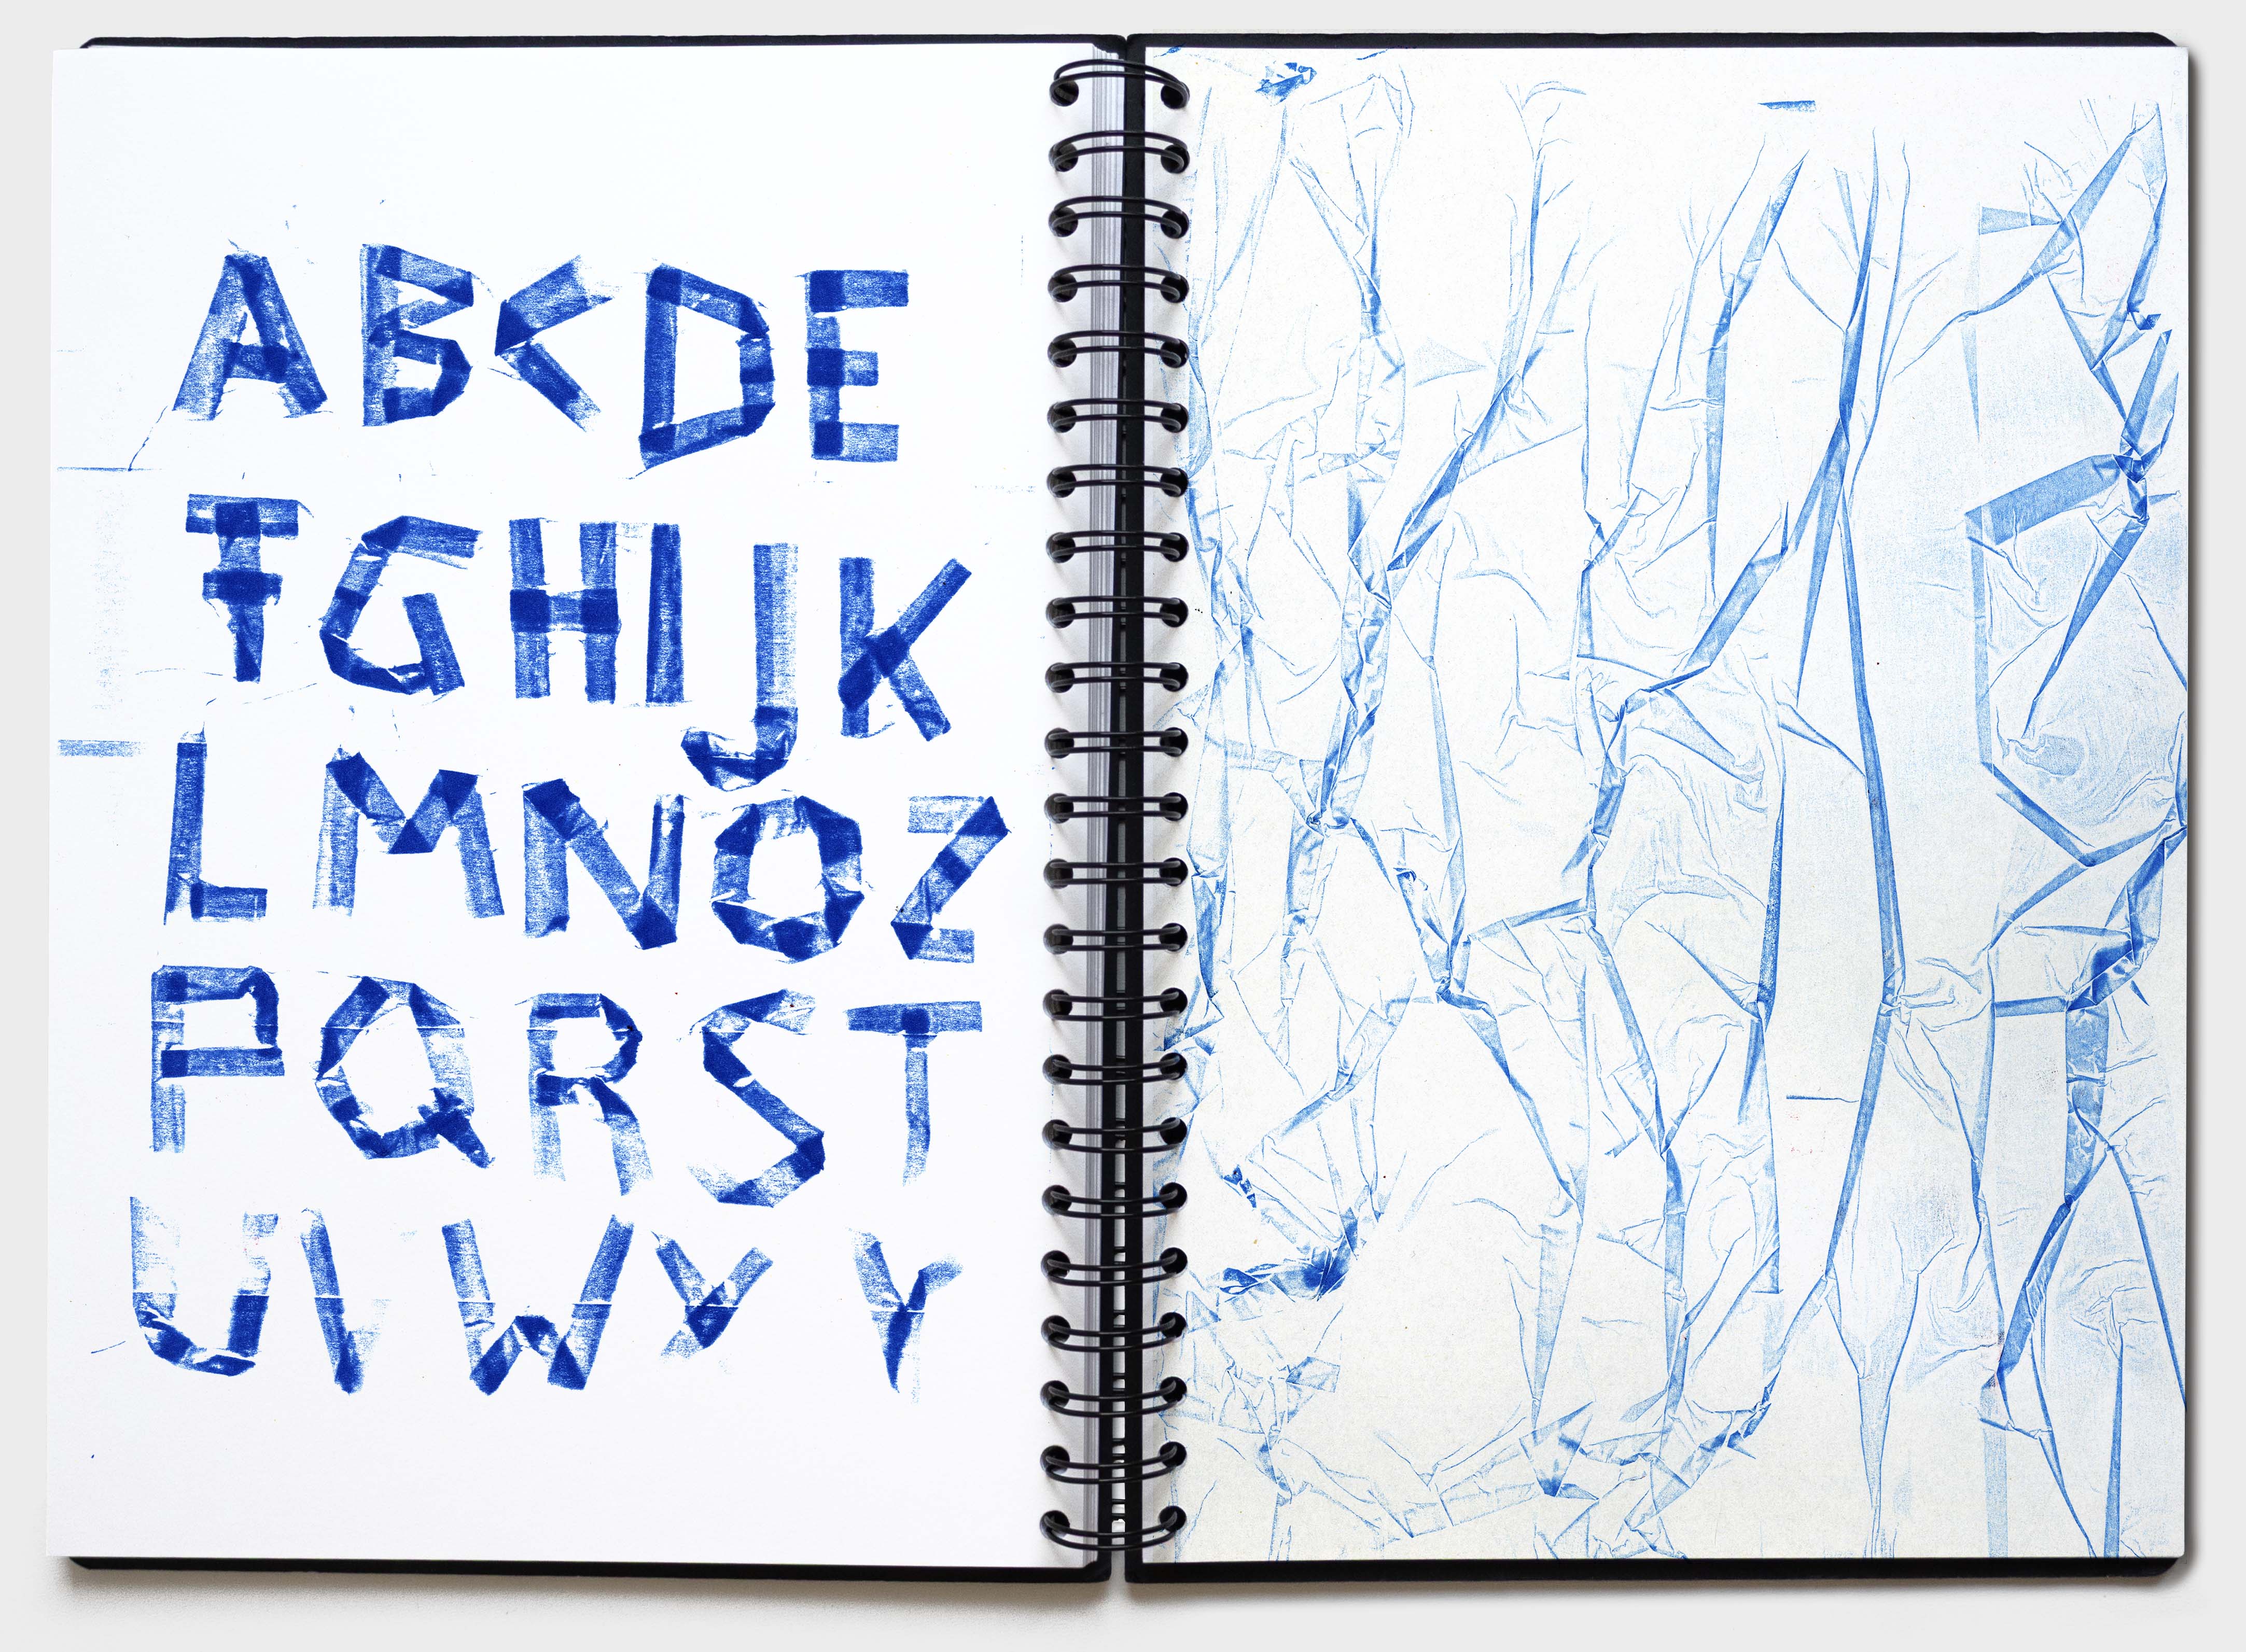 ABCDE
FGHIJK
LMNOZ
PQRST
UVWXY